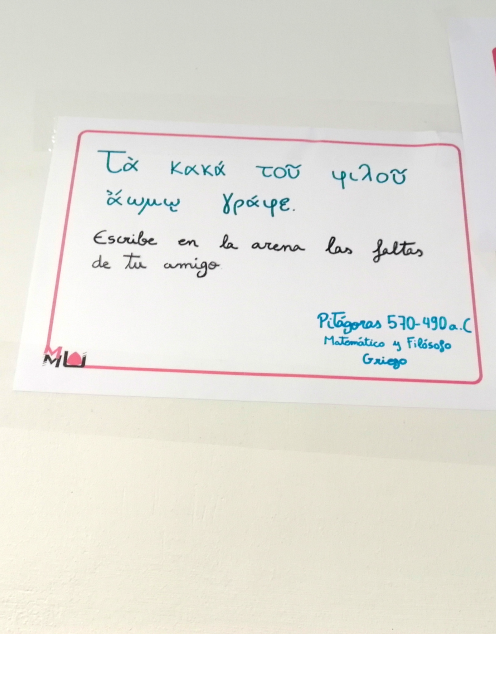 Τὰ κακά τοῦ φιλοῦ
ἄωμῳ γράφε.
Escribe en la arena las faltas
de tu amigo
Pitágoras 570-490 a.C
Matemático y Filósofo
Griego